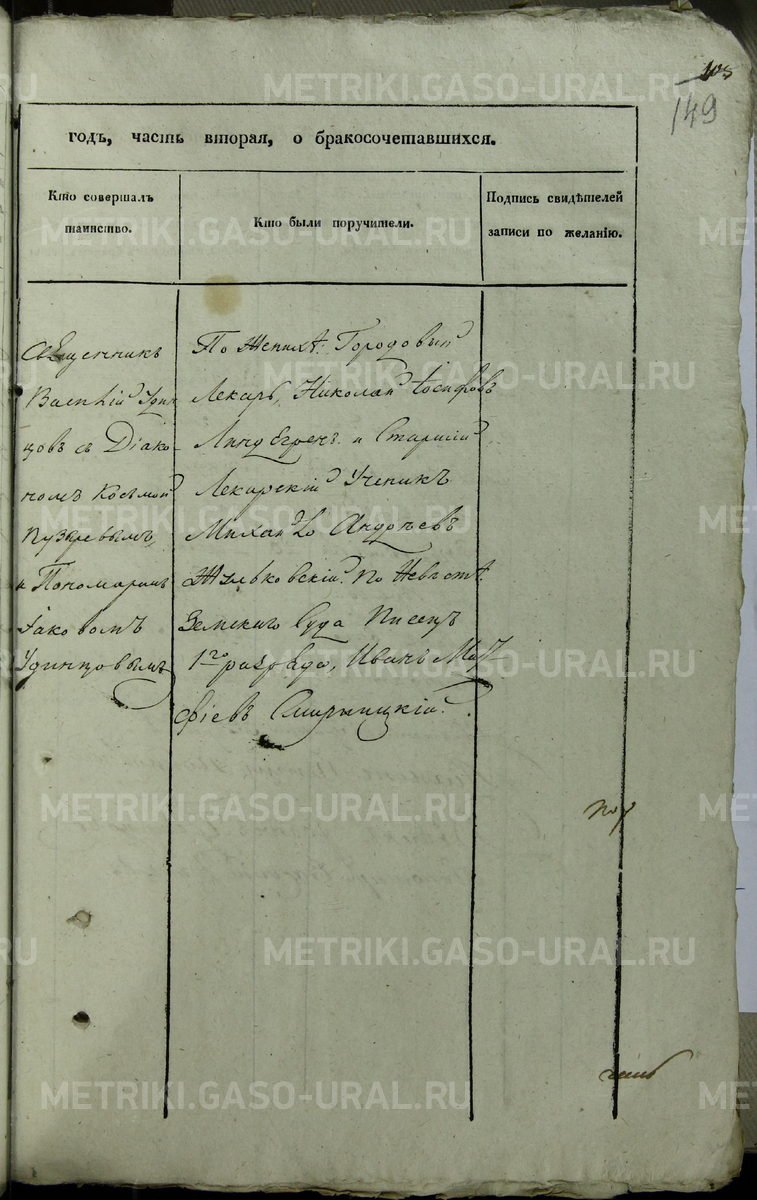 149
годъ, часть вторая, о бракосочетавшихся.
Кто совершалъ
таинство.
Кто были поручители.
Подпись свидѣтелей
записи по желанію.
Священникъ
Василій Удин
цовъ съ Діако-
номъ Косьмой
Пузыревымъ,
и Пономаремъ
Іаковомъ
Удинцовымъ
По Женихѣ: Городовый
Лекарь, Николай Іосифовъ
Линдегренъ. и Старшій
Лекарскій Ученикъ
Михайло Андреевъ
Жульковскій. По Невѣстѣ:
Земскаго Суда Писецъ
1го разряда, Иванъ Мат
фіевъ Смирницкій.
METRIKI.GASO-URAL.RU